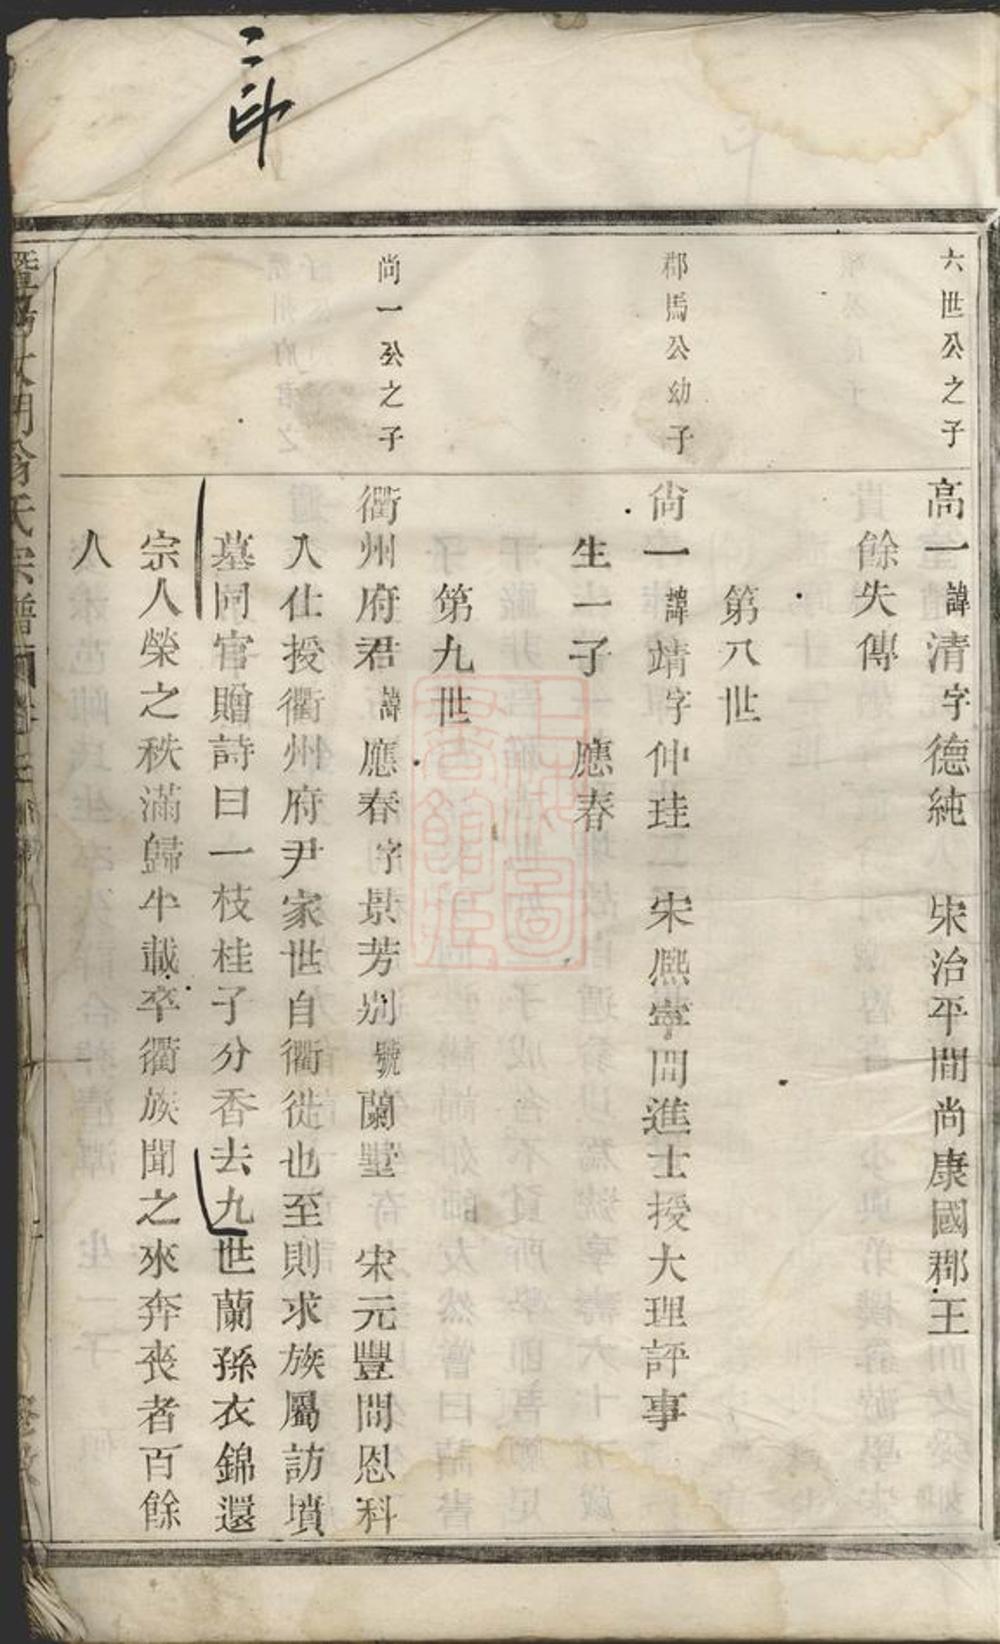 三印
六世公之子
高一諱清字德純　宋治平間尚康國郡王
餘失傳
第八世
郡馬公幼子
尚一諱靖字仲珪　宋熈寧間進士授大理評事
生一子　應春
第九世
尚一公之子
衢州府君諱應春字景芳别號蘭墅　宋元豐間恩科
入仕授衢州府尹家世自衢徙也至則求族屬訪墳
墓同官贈詩曰一枝桂子分香去九世蘭孫衣錦還
宗人榮之秩滿歸半載卒衢族聞之來奔喪者百餘
人
上海圖書館藏